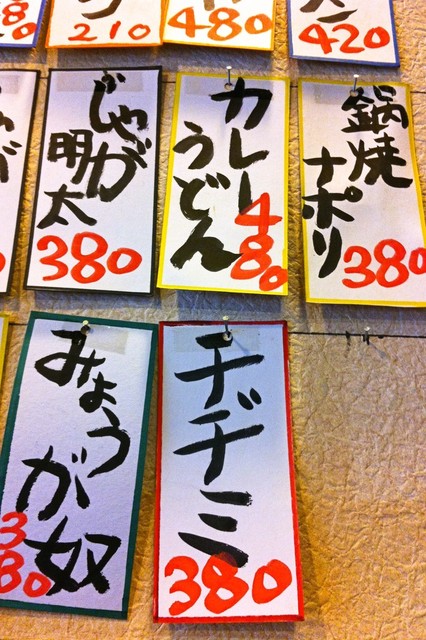 210
480
420
じゃが
明太
380
カレー
うどん
480
鍋焼
ナポリ
380
みょう
が奴
380
チヂミ
380